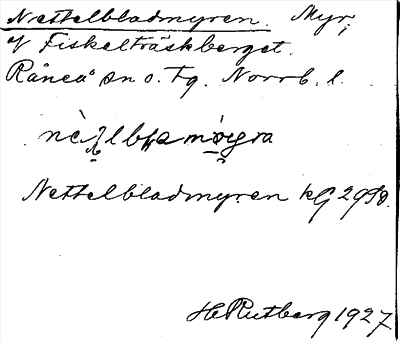 Nettelbladmyren. Myr,
v Fiskelträskberget.
Råneå sn o. tg. Norrb. l.
Nettelbladmyren kG 2980.
H Rutberg 1927